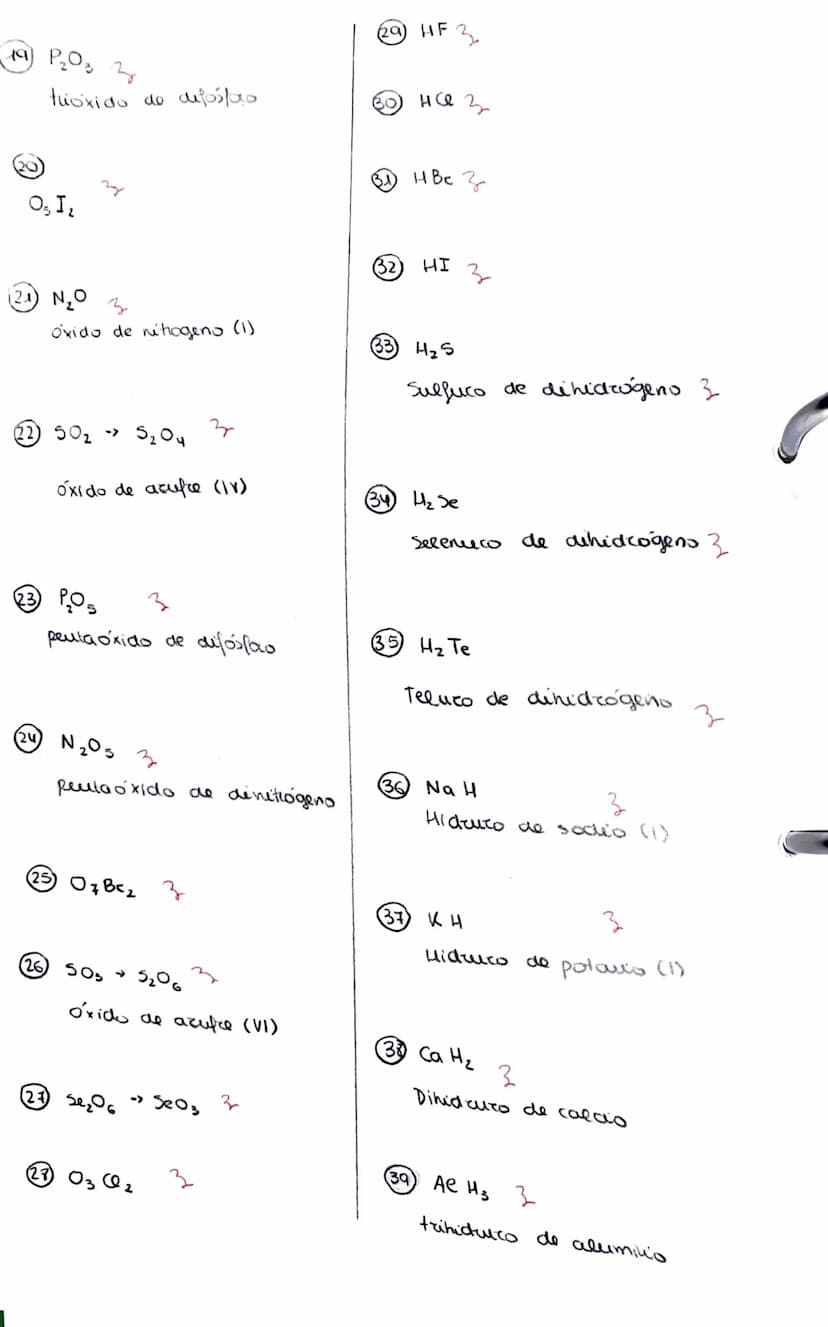 19 P₂O₃
trióxido de difósforo
20
O₅I₂
21 N₂O
óxido de nitrógeno (I)
22 SO₂ → S₂O₄
óxido de azufre (IV)
23 P₂O₅
pentaóxido de difósforo
24 N₂O₅
Pentaóxido de dinitrógeno
25 O₇Br₂
26 SO₃ → S₂O₆
óxido de azufre (VI)
27 Se₂O₆ → SeO₃
28 O₃Cl₂
29 HF
30 HCl
31 HBr
32 HI
33 H₂S
Sulfuro de dihidrógeno
34 H₂Se
Seleniuro de dihidrógeno
35 H₂Te
Teluro de dihidrógeno
36 NaH
Hidruro de sodio (I)
37 KH
Hidruro de potasio (I)
38 CaH₂
Dihidruro de calcio
39 AlH₃
trihidruro de aluminio